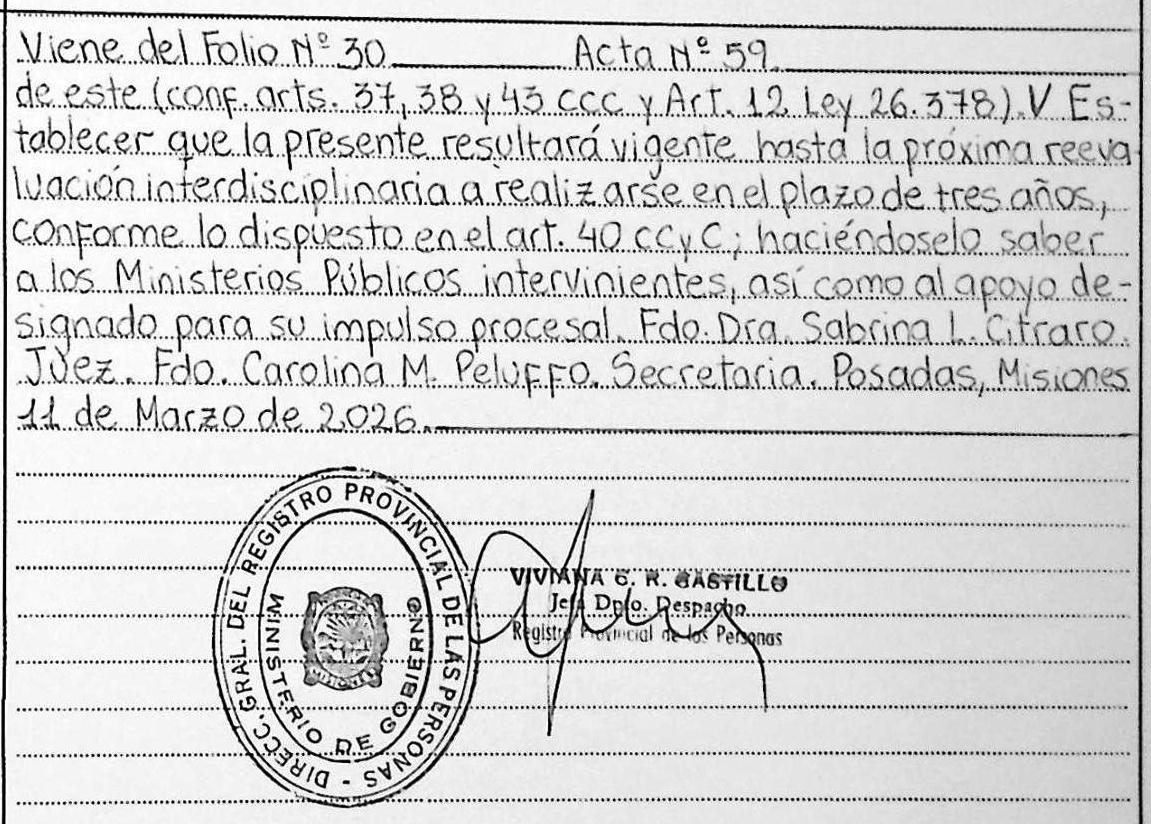 Viene del Folio Nº 30 Acta Nº 59
de este (conf. arts. 37, 38 y 43 CCC y Art. 12 Ley 26.378). V Es-
tablecer que la presente resultará vigente hasta la próxima reeva
luación interdisciplinaria a realizarse en el plazo de tres años,
conforme lo dispuesto en el art. 40 CCyC; haciéndoselo saber
a los Ministerios Públicos intervinientes, así como al apoyo de-
signado para su impulso procesal. Fdo. Dra. Sabrina L. Citraro.
Juez. Fdo. Carolina M. Peluffo. Secretaria. Posadas, Misiones
11 de Marzo de 2026.
DIRECC. GRAL. DEL REGISTRO PROVINCIAL DE LAS PERSONAS -
MINISTERIO DE GOBIERNO
MISIONES
VIVIANA G. R. CASTILLO
Jefa Dpto. Despacho
Registro Provincial de las Personas